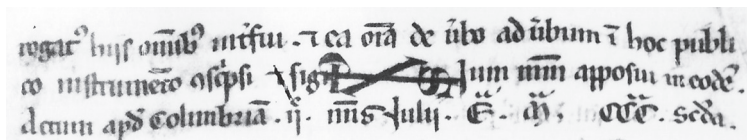 rogat⁹ hijs om̅ib⁹ int̅fui . ⁊ ea oi̅a de u̅bo ad u̅bum i̅ hoc publi
co instrume̅to ɔsc̅psi ⁊ sig um mm̅ apposui in eode̅ .
Actum apd̅ Columbria̅ . ij . nn̅s Julij . E̅ . M̅ . CCC̅ . scd̅a .